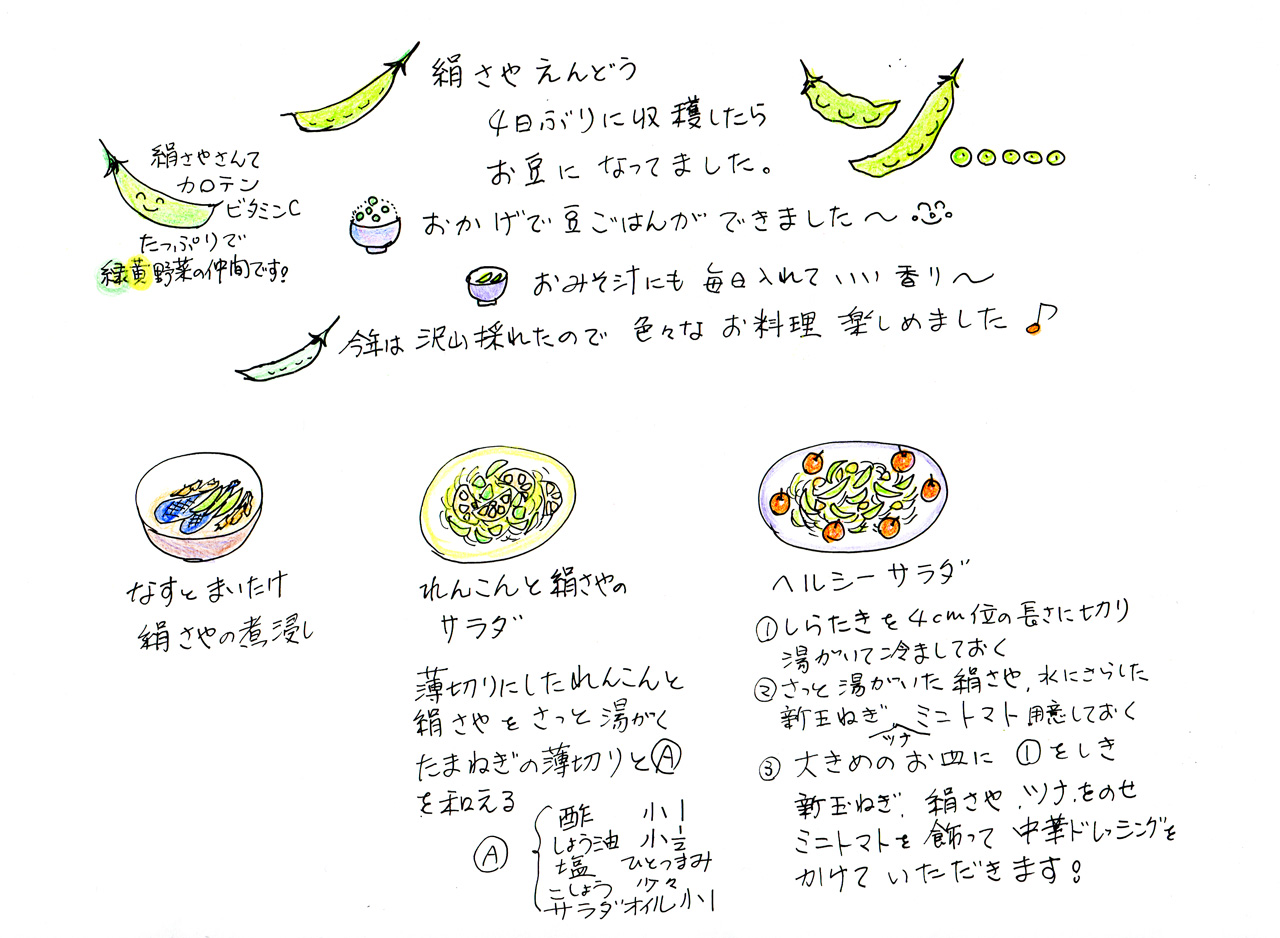 絹さやえんどう
4日ぶりに収穫したら
お豆になってました。
絹さやさんて
カロテン
ビタミンC
たっぷりで
緑黄野菜の仲間です!
おかげで豆ごはんができました〜
おみそ汁にも毎日入れていい香り〜
今年は沢山採れたので色々なお料理楽しめました♪
なすとまいたけ
絹さやの煮浸し
れんこんと絹さやの
サラダ
薄切りにしたれんこんと
絹さやをさっと湯がく
たまねぎの薄切りとⒶ
を和える
Ⓐ
酢 小1
しょう油 小1/2
塩 ひとつまみ
こしょう 少々
サラダオイル小1
ヘルシーサラダ
①しらたきを4cm位の長さに切り
湯がいて冷ましておく
②さっと湯がいた絹さや、水にさらした
新玉ねぎ、ミニトマト用意しておく
ツナ
③大きめのお皿に①をしき
新玉ねぎ、絹さや、ツナをのせ
ミニトマトを飾って中華ドレッシングを
かけていただきます!